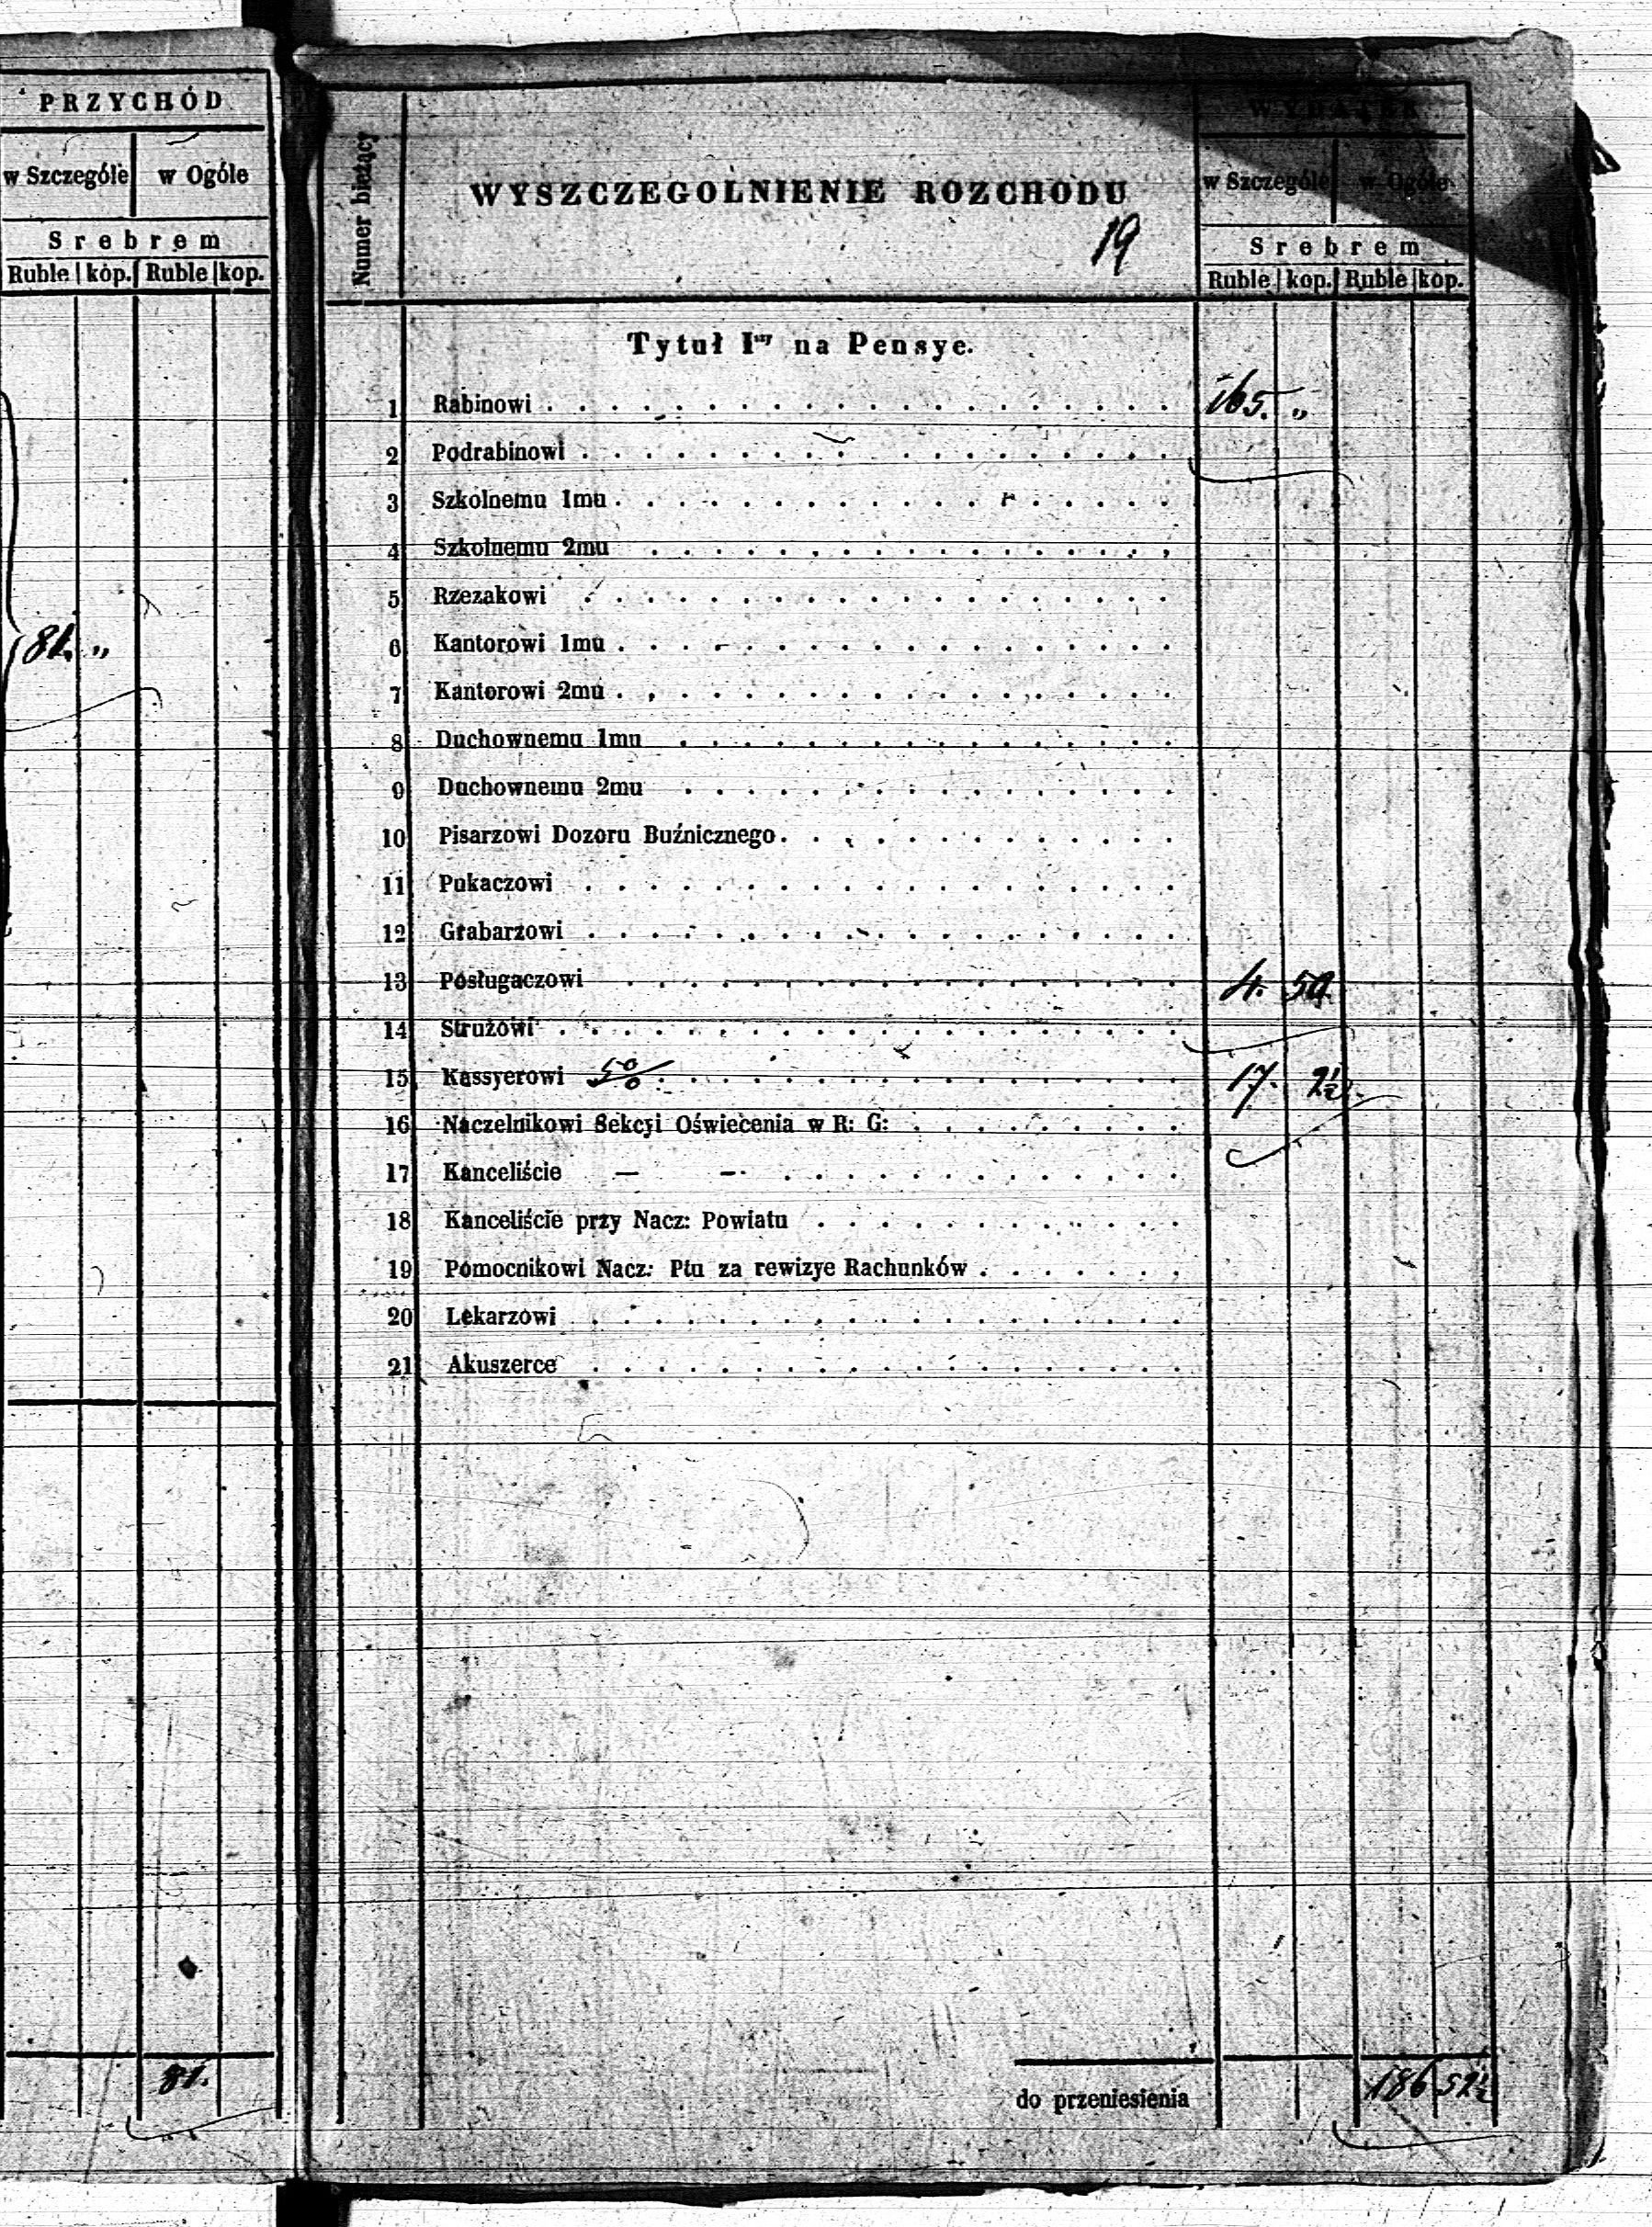 PRZYCHÓD
w Szczególe w Ogóle
Srebrem
Ruble kop. Ruble kop.
81. „
81.
Numer bieżący
WYSZCZEGOLNIENIE ROZCHODU
19
WYDATEK
w Szczególe w Ogóle
Srebrem
Ruble kop. Ruble kop.
Tytuł Iszy na Pensye.
1 Rabinowi . . . 165. „
2 Podrabinowi . . .
3 Szkolnemu 1mu . . .
4 Szkolnemu 2mu . . .
5 Rzezakowi . . .
6 Kantorowi 1mu . . .
7 Kantorowi 2mu . . .
8 Duchownemu 1mu . . .
9 Duchownemu 2mu . . .
10 Pisarzowi Dozoru Buźnicznego . . .
11 Pukaczowi . . .
12 Grabarzowi . . .
13 Posługaczowi . . . 4. 50.
14 Strużowi . . .
15 Kassyerowi 5% . . . 17. 2½.
16 Naczelnikowi Sekcyi Oświecenia w R: G: . . .
17 Kanceliście — — . . .
18 Kanceliście przy Nacz: Powiatu . . .
19 Pomocnikowi Nacz: Ptu za rewizye Rachunków . . .
20 Lekarzowi . . .
21 Akuszerce . . .
do przeniesienia 186 52½